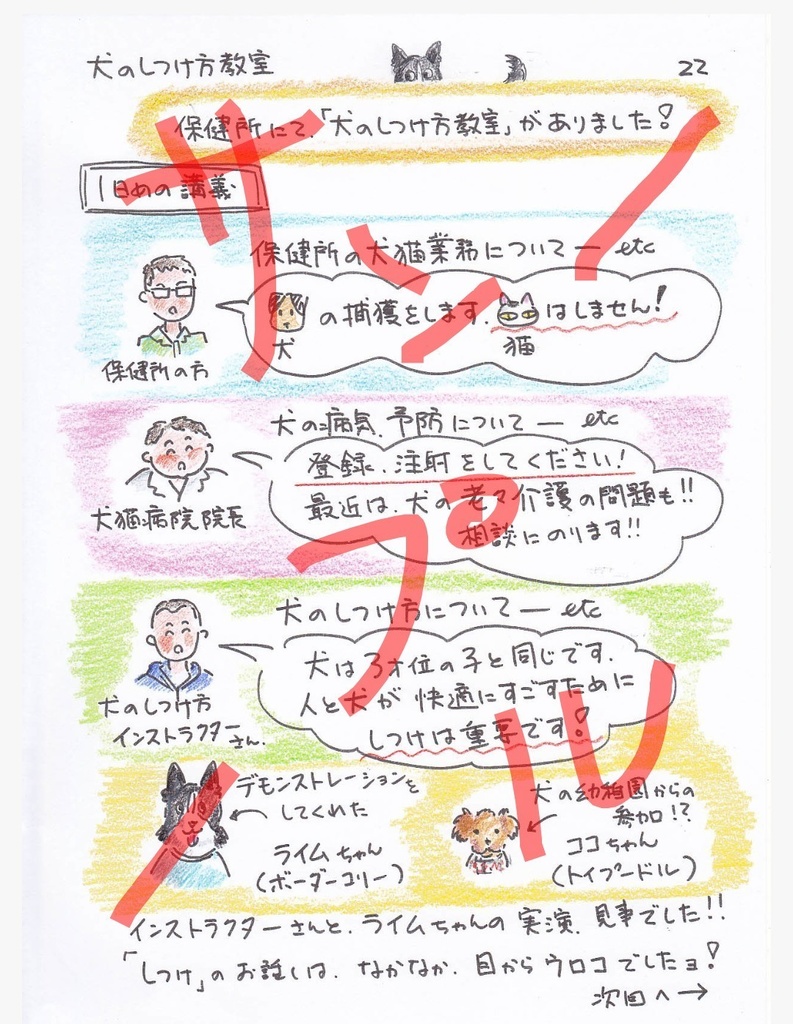 犬のしつけ方教室
22
保健所にて、「犬のしつけ方教室」がありました!
1日めの講義
保健所の犬猫業務について— etc
の捕獲をします. はしません!
犬 猫
保健所の方
犬の病気、予防について— etc
登録、注射をしてください!
最近は、犬の老々介護の問題も!!
相談にのります!!
犬猫病院院長
犬のしつけ方について— etc
犬は3才位の子と同じです.
人と犬が快適にすごすために
しつけは重要です!
犬のしつけ方
インストラクターさん.
デモンストレーションを
してくれた
ライムちゃん
(ボーダーコリー)
犬の幼稚園からの
参加!?
ココちゃん
(トイプードル)
インストラクターさんと、ライムちゃんの実演、見事でした!!
「しつけ」のお話しは、なかなか、目からウロコでしたョ!
次回へ→
サンプル